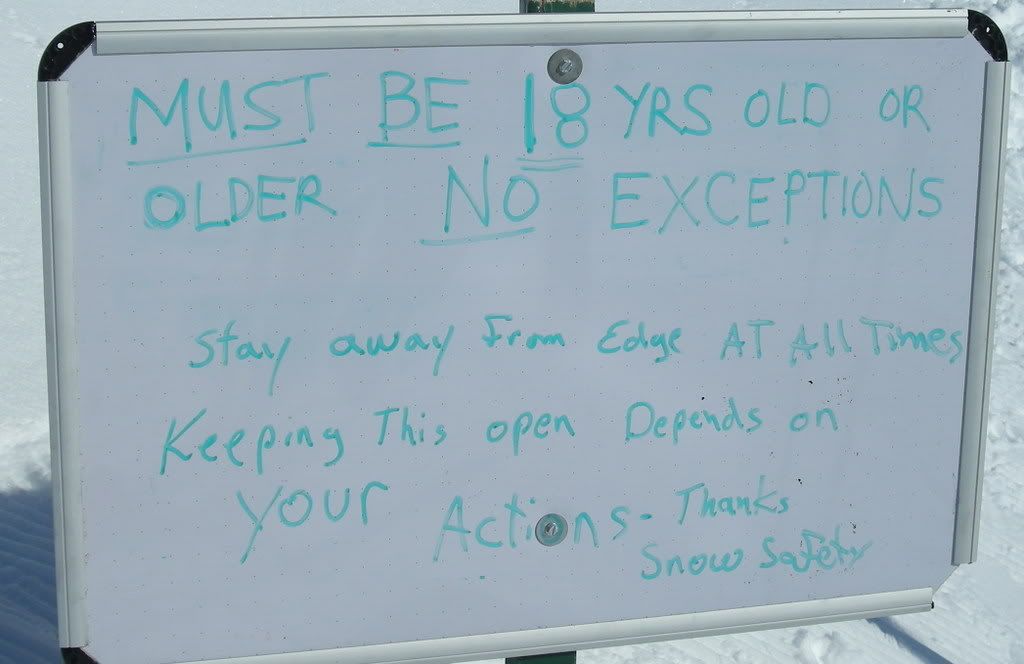 MUST BE 18 YRS OLD OR
OLDER NO EXCEPTIONS
Stay away From Edge AT All Times
Keeping This open Depends on
YOUR Actions - Thanks
Snow Safety